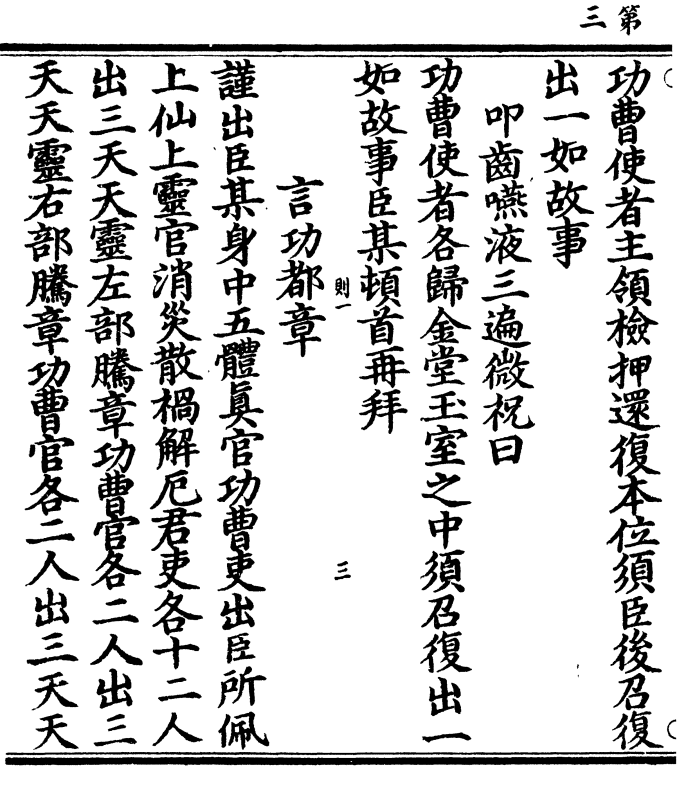 第三
功曹使者主領檢押還復本位須臣後召復
出一如故事
叩齒嚥液三遍微祝曰
功曹使者各歸金堂玉室之中須召復出一
如故事臣某頓首再拜
則一
三
言功都章
謹出臣某身中五體真官功曹吏出臣所佩
上仙上靈官消災散禍解厄君吏各十二人
出三天天靈左部騰章功曹官各二人出三
天天靈右部騰章功曹官各二人出三天天